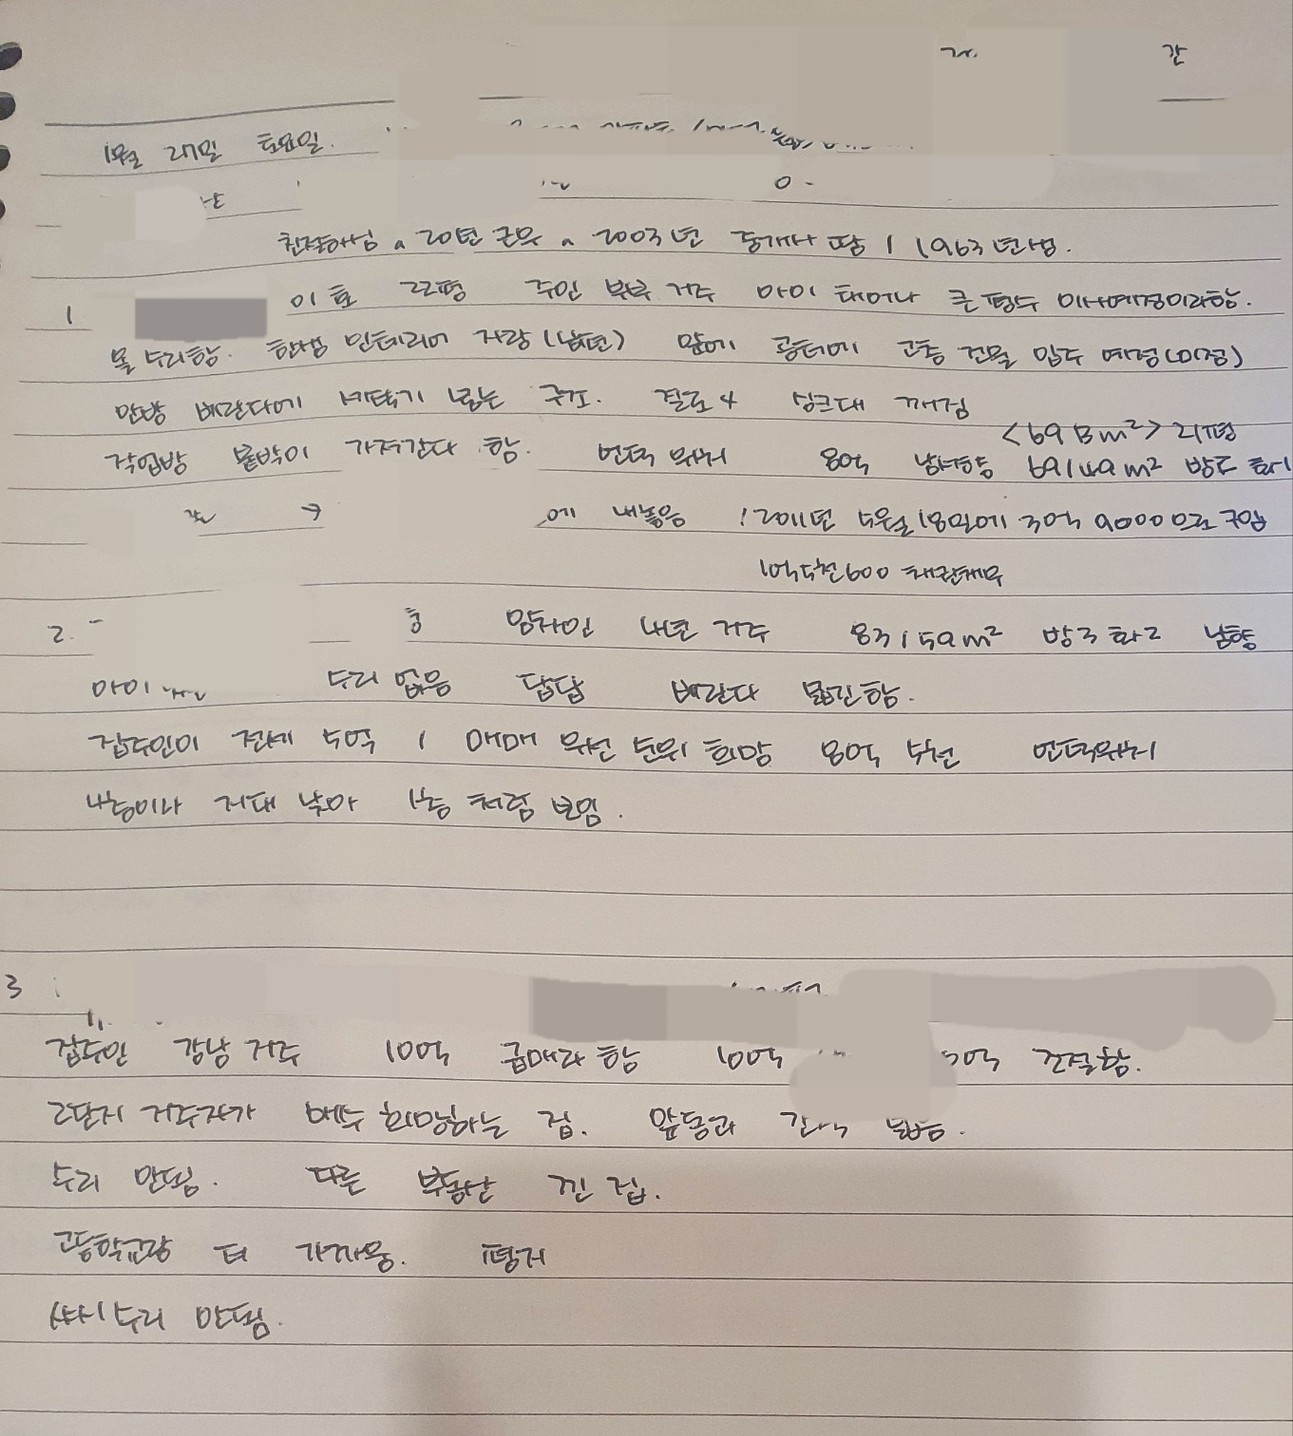 간
1월 27일 토요일.
친절하심 20년 근무 2003년 중개사 땀 / 1963년생.
1 이호 22평 주인 부부 거주 아이 태어나 큰 평수 이사예정이라함.
올 수리함. 한샘 인테리어 자랑(남편) 앞에 공터에 고층 건물 입주 예정(미정)
안방 베란다에 세탁기 넣는 구조. 결로 싱크대 깨짐
<69 B m²> 21평
작업방 붙박이 가져간다 함. 언덕 위치 8억 남서향 69/49m² 방2 화1
에 내놓음 / 2011년 5월 18일에 3억 9000으로 구입
1억5천600 채권채무
2. 호 임차인 4년 거주 83/59m² 방3 화2 남향
아이 수리 없음 답답 베란다 물긴함.
집주인이 전세 5억 / 매매 우선 순위 희망 8억 5천 언덕위치
4층이나 지대 낮아 1층 처럼 보임.
3
집주인 강남 거주 10억 급매라 함 10억 조절함.
2단지 거주자가 매수 희망하는 집. 앞동과 간격 넓음.
수리 안됨. 다른 부동산 낀 집.
고등학교랑 더 가까움. 평지
샷시수리 안됨.